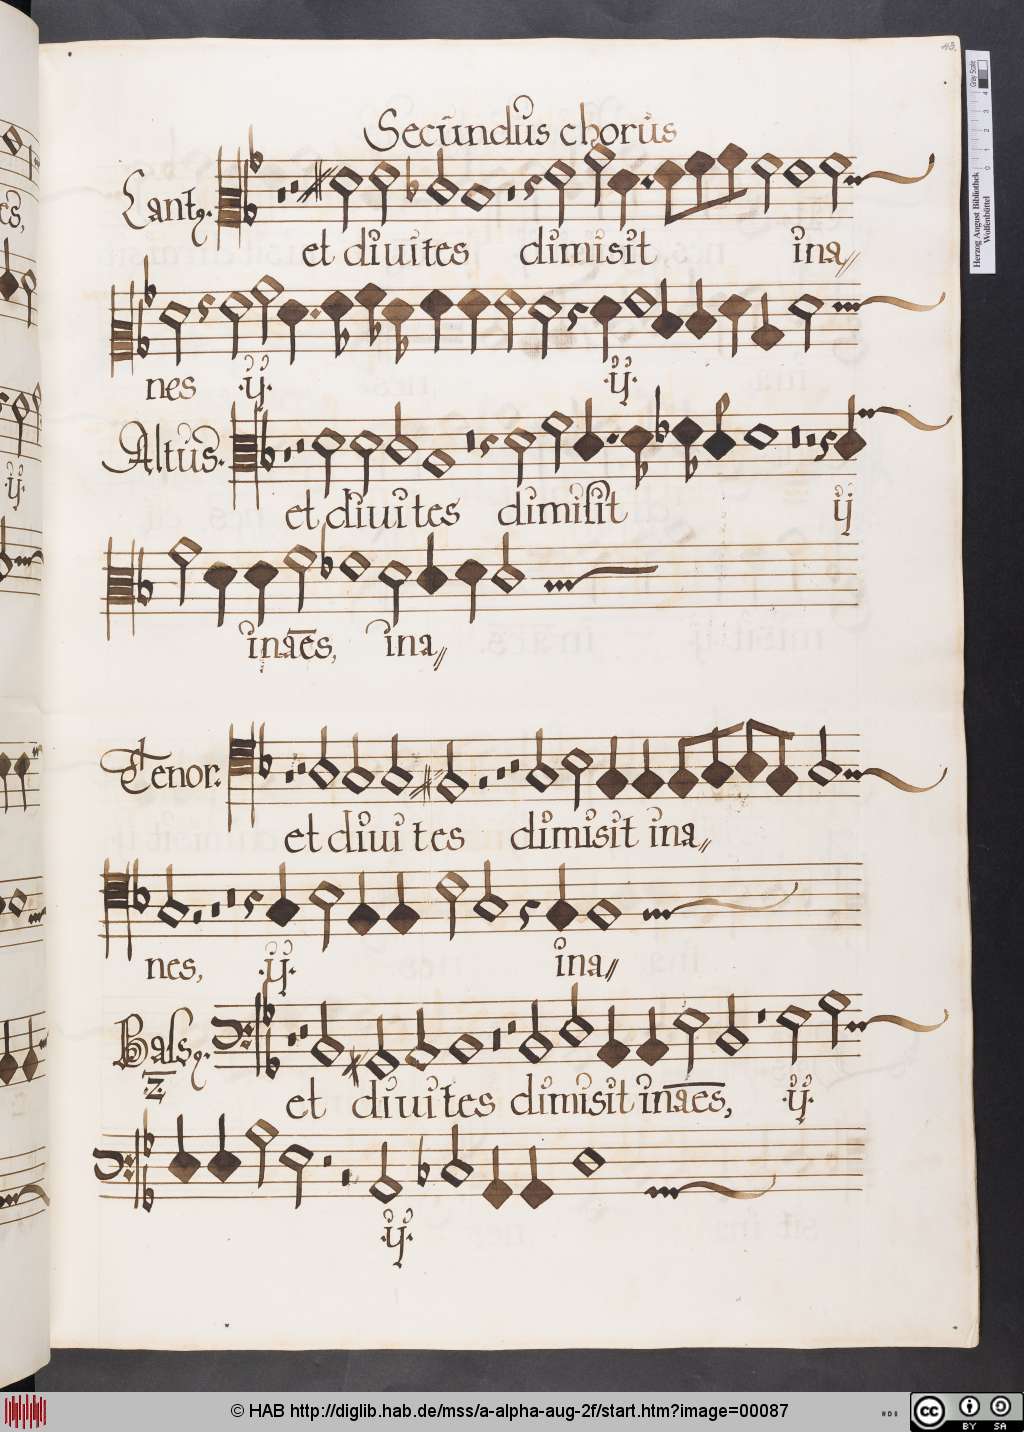 Secundus chorus
Cantꝯ.
et diuites dimisit ina//
nes .ij. .ij.
Altus.
et diuites dimisit ij
inaēs, ina//
Tenor.
et diuites dimisit ina//
nes, .ij. ina//
Basꝯ.
2
et diuites dimisit inaēs, .ij.
.ij.
Herzog August Bibliothek
Wolfenbüttel
Gray Scale
0 1 2 3 4
© HAB http://diglib.hab.de/mss/a-alpha-aug-2f/start.htm?image=00087
cc BY SA